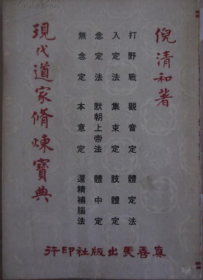 倪清和著
打野戰 觀音定 體定法
入定法 集束定 肢體定
念定法 默朝上帝法 體中定
無念定 本意定 還精補腦法
現代道家修煉寶典
行印社版出天善慕